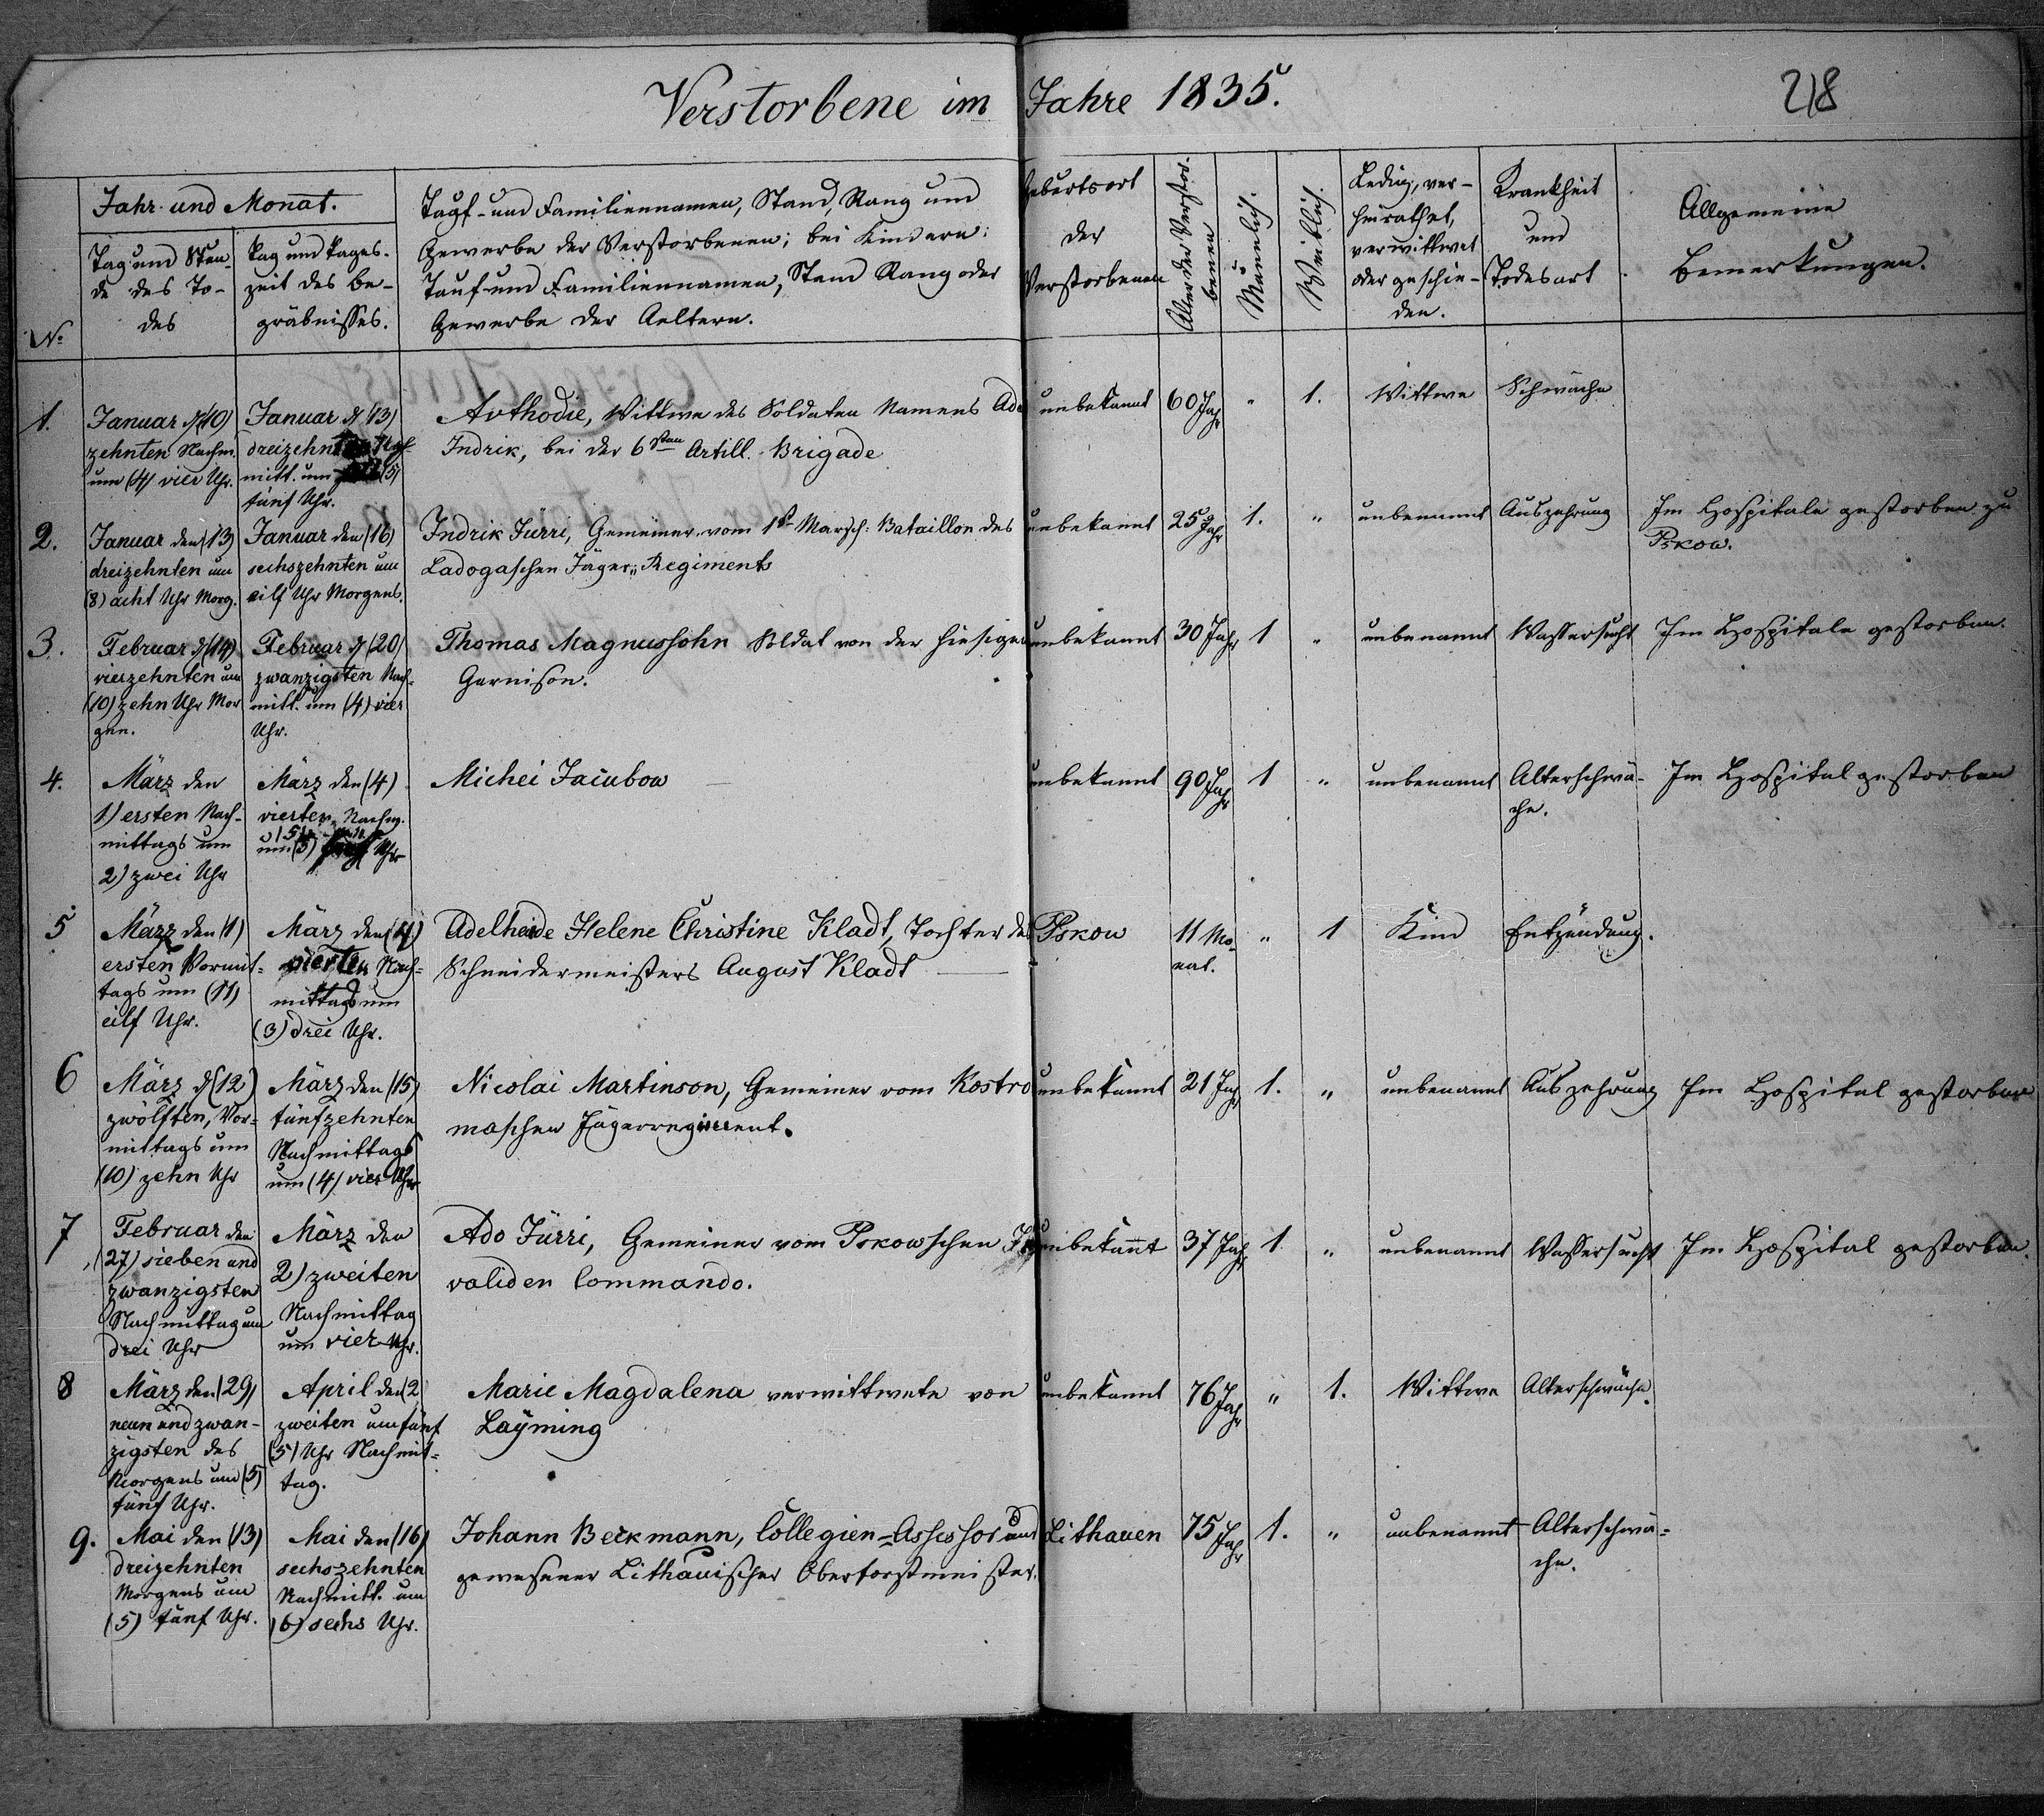 Verstorbene im Jahre 1835.
218
No
Jahr und Monat.
Tag und Stun-
de des To-
des
Tag und Tages-
zeit des Be-
gräbnisses.
Tauf- und Familiennamen, Stand, Rang und
Gewerbe der Verstorbenen; bei Kindern:
Tauf und Familiennamen, Stand Rang oder
Gewerbe der Aeltern.
Geburtsort
der
Verstorbenen
Alter der Verstor-
benen
Männlich.
Weiblich.
Ledig, ver-
heirathet,
verwittwet
oder geschie-
den.
Krankheit
und
Todesart
Allgemeine
Bemerkungen.
1.
Januar d (10)
zehnten Nachm.
um (4) vier Uhr.
Januar d (13)
dreizehnten Nach-
mitt. um (5)
fünf Uhr.
Avthodie, Wittwe des Soldaten Namens Ado
Indrik, bei der 6sten Artill. Brigade
unbekannt
60 Jahr
"
1.
Wittwe
Schwäche
2.
Januar den (13)
dreizehnten um
(8) acht Uhr Morg.
Januar den (16)
sechszehnten um
eilf Uhr Morgens.
Indrik Jürri, Gemeiner vom 1st Marsch: Bataillon des
Ladogaschen Jäger„ Regiments
unbekannt
25 Jahr
1.
"
unbenannt
Auszehrung
Im Hospitale gestorben zu
Pskow.
3.
Februar d (14)
vierzehnten um
(10) zehn Uhr Mor
gen.
Februar d (20)
zwanzigsten Nach-
mitt. um (4) vier
Uhr.
Thomas Magnussohn Soldat von der hiesigen
Garnison.
unbekannt
30 Jahr
1
"
unbenannt
Wassersucht
Im Hospitale gestorben.
4.
März den
1) ersten Nach-
mittags um
2) zwei Uhr
März den (4)
vierten Nachm.
um (5) fünf Uhr
Michei Jacubow
unbekannt
90 Jahr
1
"
unbenannt
Alterschwä-
che.
Im Hospital gestorben
5
März den (1)
ersten Vormit-
tags um (11)
eilf Uhr.
März den (4)
vierten Nach-
mittags um
(3) drei Uhr.
Adelheide Helene Christine Kladt, Tochter des
Schneidermeisters August Kladt
Pskow
11 Mo-
nat.
"
1
Kind
Entzündung.
6
März d (12)
zwölften, Vor-
mittags um
(10) zehn Uhr
März den (15)
fünfzehnten
Nachmittags
um (4) vier Uhr
Nicolai Martinson, Gemeiner vom Kostro
maschen Jägerregiment.
unbekannt
21 Jahr
1.
"
unbenannt
Auszehrung
Im Hospital gestorben
7
Februar den
(27) sieben und
zwanzigsten
Nachmittag um
drei Uhr
März den
2) zweiten
Nachmittag
um vier Uhr.
Ado Jürri, Gemeiner vom Pskowschen In
validen Commando.
unbekannt
37 Jahr
1
"
unbenannt
Wassersucht
Im Hospital gestorben.
8
März den (29)
neun und zwan-
zigsten des
Morgens um (5)
fünf Uhr.
April den (2
zweiten um fünf
(5) Uhr Nachmit-
tag.
Marie Magdalena verwittwete von
Laÿming
unbekannt
76 Jahr
"
1.
Wittwe
Alterschwäche.
9.
Mai den (13)
dreizehnten
Morgens um
(5) fünf Uhr.
Mai den (16)
sechszehnten
Nachmitt. um
(6) sechs Uhr.
Johann Beckmann, Collegien-Assessor und
gewesener Lithauischer Oberforstmeister.
Lithauen
75 Jahr
1.
"
unbenannt
Alterschwä-
che.